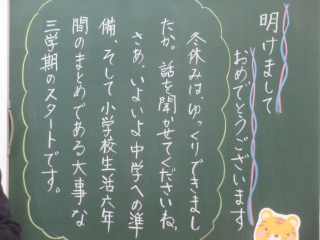 明けまして
おめでとうございます
冬休みは、ゆっくりできまし
たか。話を聞かせてくださいね。
さあ、いよいよ中学への準
備、そして小学校生活六年
間のまとめである大事な
三学期のスタートです。